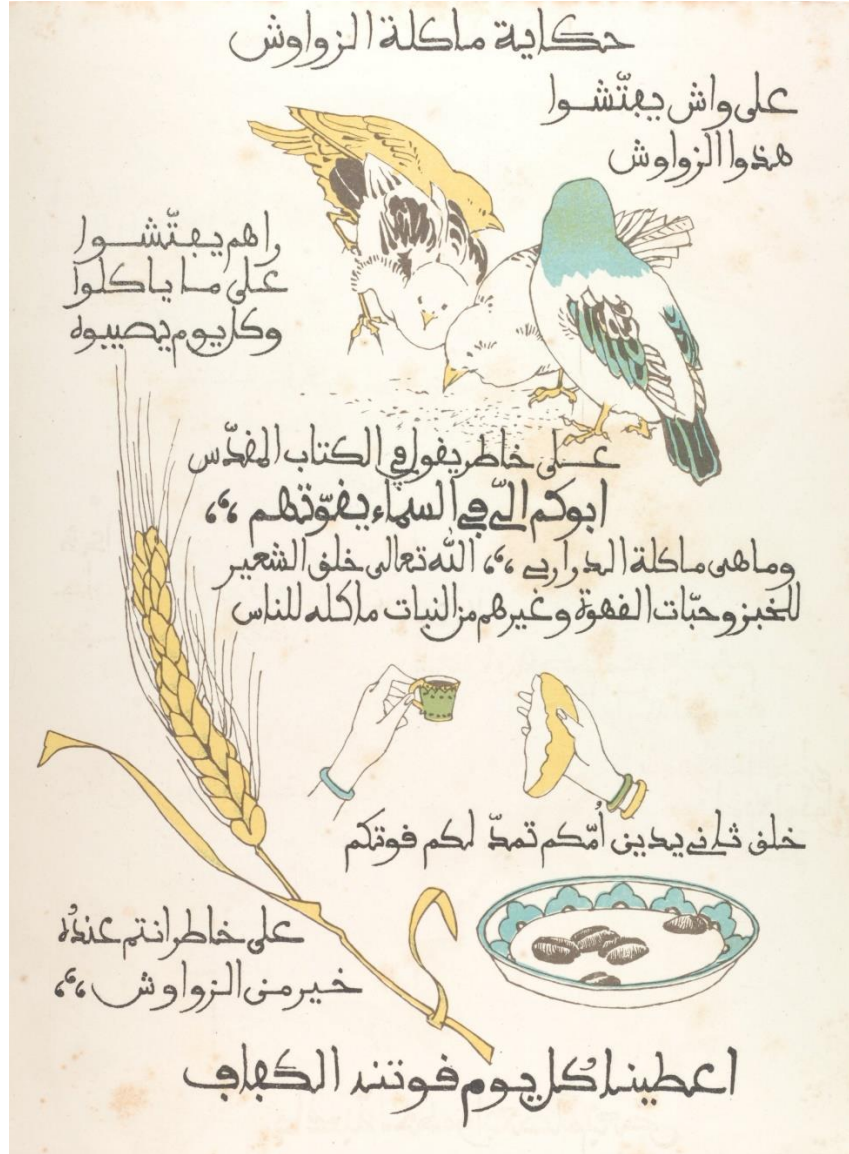 حكاية ماكلة الزواوش
على واش يفتّشوا
هذوا الزواوش
راهم يفتّشوا
على ما ياكلوا
وكل يوم يصيبوه
على خاطر يقول في الكتاب المقدّس
ابوكم الّي في السماء يقوّتهم ،،
وما هي ماكلة الدراري ،، الله تعالى خلق الشعير
للخبز وحبّات القهوة وغيرهم من النبات ماكله للناس
خلق ثاني يدين أُمّكم تمدّ لكم قوتكم
على خاطر انتم عندُه
خير من الزواوش ،،
اعطينا كل يوم قوتنا الكفاف